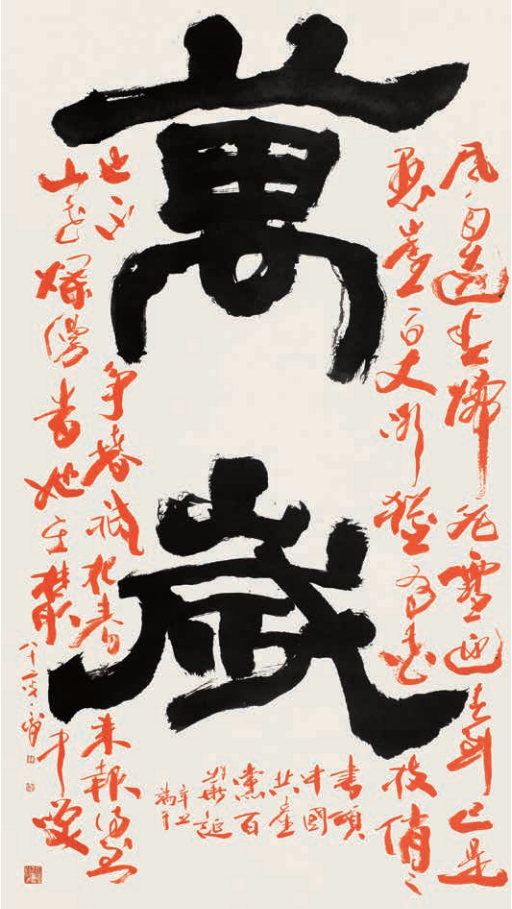 萬歲
風雨送春歸飛雪迎春到已是
懸崖百丈冰猶有花枝俏々
也不爭春祇把春來報待到
山花爛漫時她在叢中笑
書頌
中國
共產
黨百
年華誕
辛丑
端午